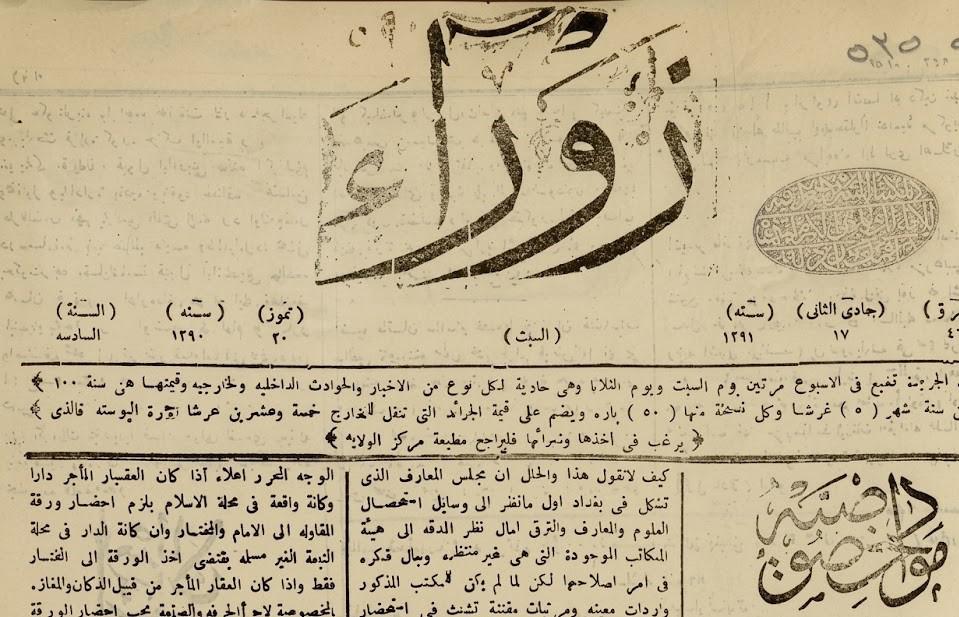 زوراء
(جمادى الثانى) (سنه) (تموز) (سنه) (السنة)
١٧ ١٢٩١ (السبت) ٢٠ ١٢٩٠ السادسه
الجريدة تطبع فى الاسبوع مرتين يوم السبت ويوم الثلاثا وهى حادية لكل نوع من الاخبار والحوادث الداخليه والخارجيه وقيمتها عن سنة ١٠٠
سنة شهر (٥) غرشا وكل نسخة منها (٥٠) باره ويضم على قيمة الجرائد التى تنقل للخارج خمسة وعشرين غرشا اجرة البوسته فالذى
يرغب فى أخذها وشرائها فليراجع مطبعة مركز الولايه
مواد خصوصيه
كيف لانقول هذا والحلل ان مجلس المعارف الذى
تشكل فى بغداد اول مانظر الى وسايل استحصال
العلوم والمعارف والترقى امال نظر الدقه الى هيئة
المكاتب الموجودة التى هى غير منتظمه وبال فكره
فى امر اصلاحها لكن لما لم يكن للمكتب المذكور
واردات معينه ومرتبات مقننة تشبث فى استحضار
الوجه المحرر اعلاء أذا كان العقار المأجر دارا
وكانة واقعة فى محلة الاسلام يلزم احضار ورقة
المقاوله الى الامام والمختار وان كانة الدار فى محلة
التبعة الغير مسلمه يقتضى اخذ الورقة الى المختار
فقط واذا كان العقار المأجر من قبيل الدكان والمغازه
المخصوصة لاجرأ الحرفه والصنعة يجب احضار الورقة